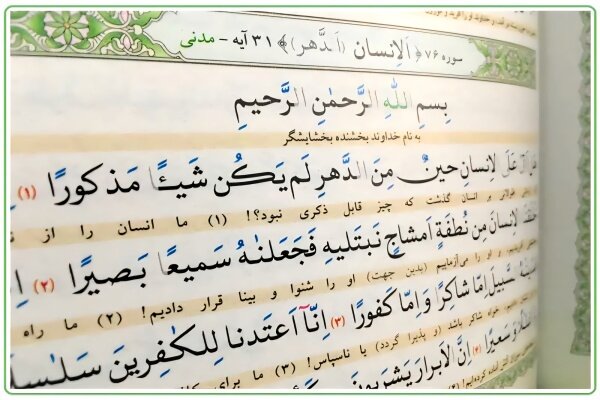 سوره ۷۶ ﴿ اَلاِنسان (اَلدَّهر) ﴾ ۳۱ آیه - مدنی
بِسمِ اللّٰهِ الرَّحمٰنِ الرَّحیمِ
به نام خداوند بخشنده بخشایشگر
عَلَی الاِنسانِ حینٌ مِنَ الدَّهرِ لَم یَکُن شَیئًا مَذکورًا ﴿۱﴾
طولانی بر انسان گذشت که چیز قابل ذکری نبود؟! (۱) ما انسان را از
الاِنسانَ مِن نُطفَةٍ اَمشاجٍ نَبتَلیهِ فَجَعَلنٰهُ سَمیعًا بَصیرًا ﴿۲﴾
و او را می‌آزماییم (بدین جهت) او را شنوا و بینا قرار دادیم! (۲) ما راه
السَّبیلَ اِمّا شاکِرًا وَ اِمّا کَفورًا ﴿۳﴾ اِنّآ اَعتَدنا لِلکٰفِرینَ سَلٰسِلَا
خواه شاکر باشد (و پذیرا گردد) یا ناسپاس! (۳) ما برای
وَ سَعیرًا ﴿۴﴾ اِنَّ الاَبرارَ یَشرَبونَ